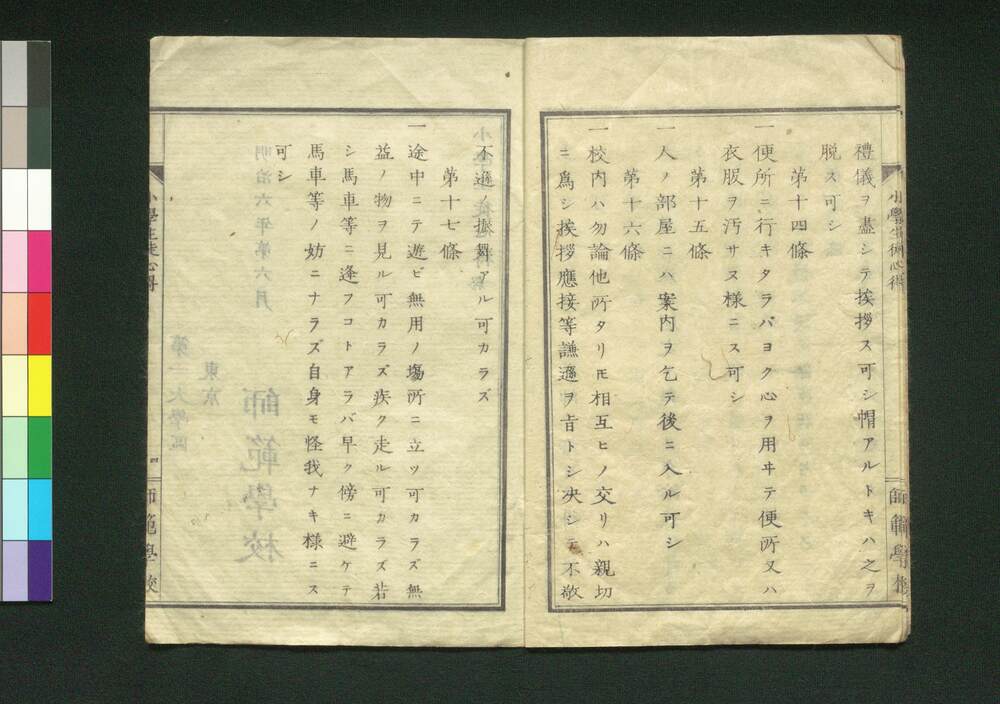 禮儀ヲ盡シテ挨拶ス可シ帽アルトキハ之ヲ
脱ス可シ
第十四條
一便所ニ行キタラバヨク心ヲ用ヰテ便所又ハ
衣服ヲ汚サヌ樣ニス可シ
第十五條
一人ノ部屋ニハ案内ヲ乞テ後ニ入ル可シ
第十六條
一校内ハ勿論他所タリ𪜈相互ヒノ交リハ親切
ニ爲シ挨拶應接等謙遜ヲ旨トシ決シテ不敬
不遜ノ振舞アル可カラズ
第十七條
一途中ニテ遊ビ無用ノ塲所ニ立ツ可カラズ無
益ノ物ヲ見ル可カラズ疾ク走ル可カラズ若
シ馬車等ニ逢フコトアラバ早ク傍ニ避ケテ
馬車等ノ妨ニナラズ自身モ怪我ナキ樣ニス
可シ
小學生徒心得
師範學校
小學生徒心得
四
師範學校
明治六年第六月
東京
師範學校
第一大學區